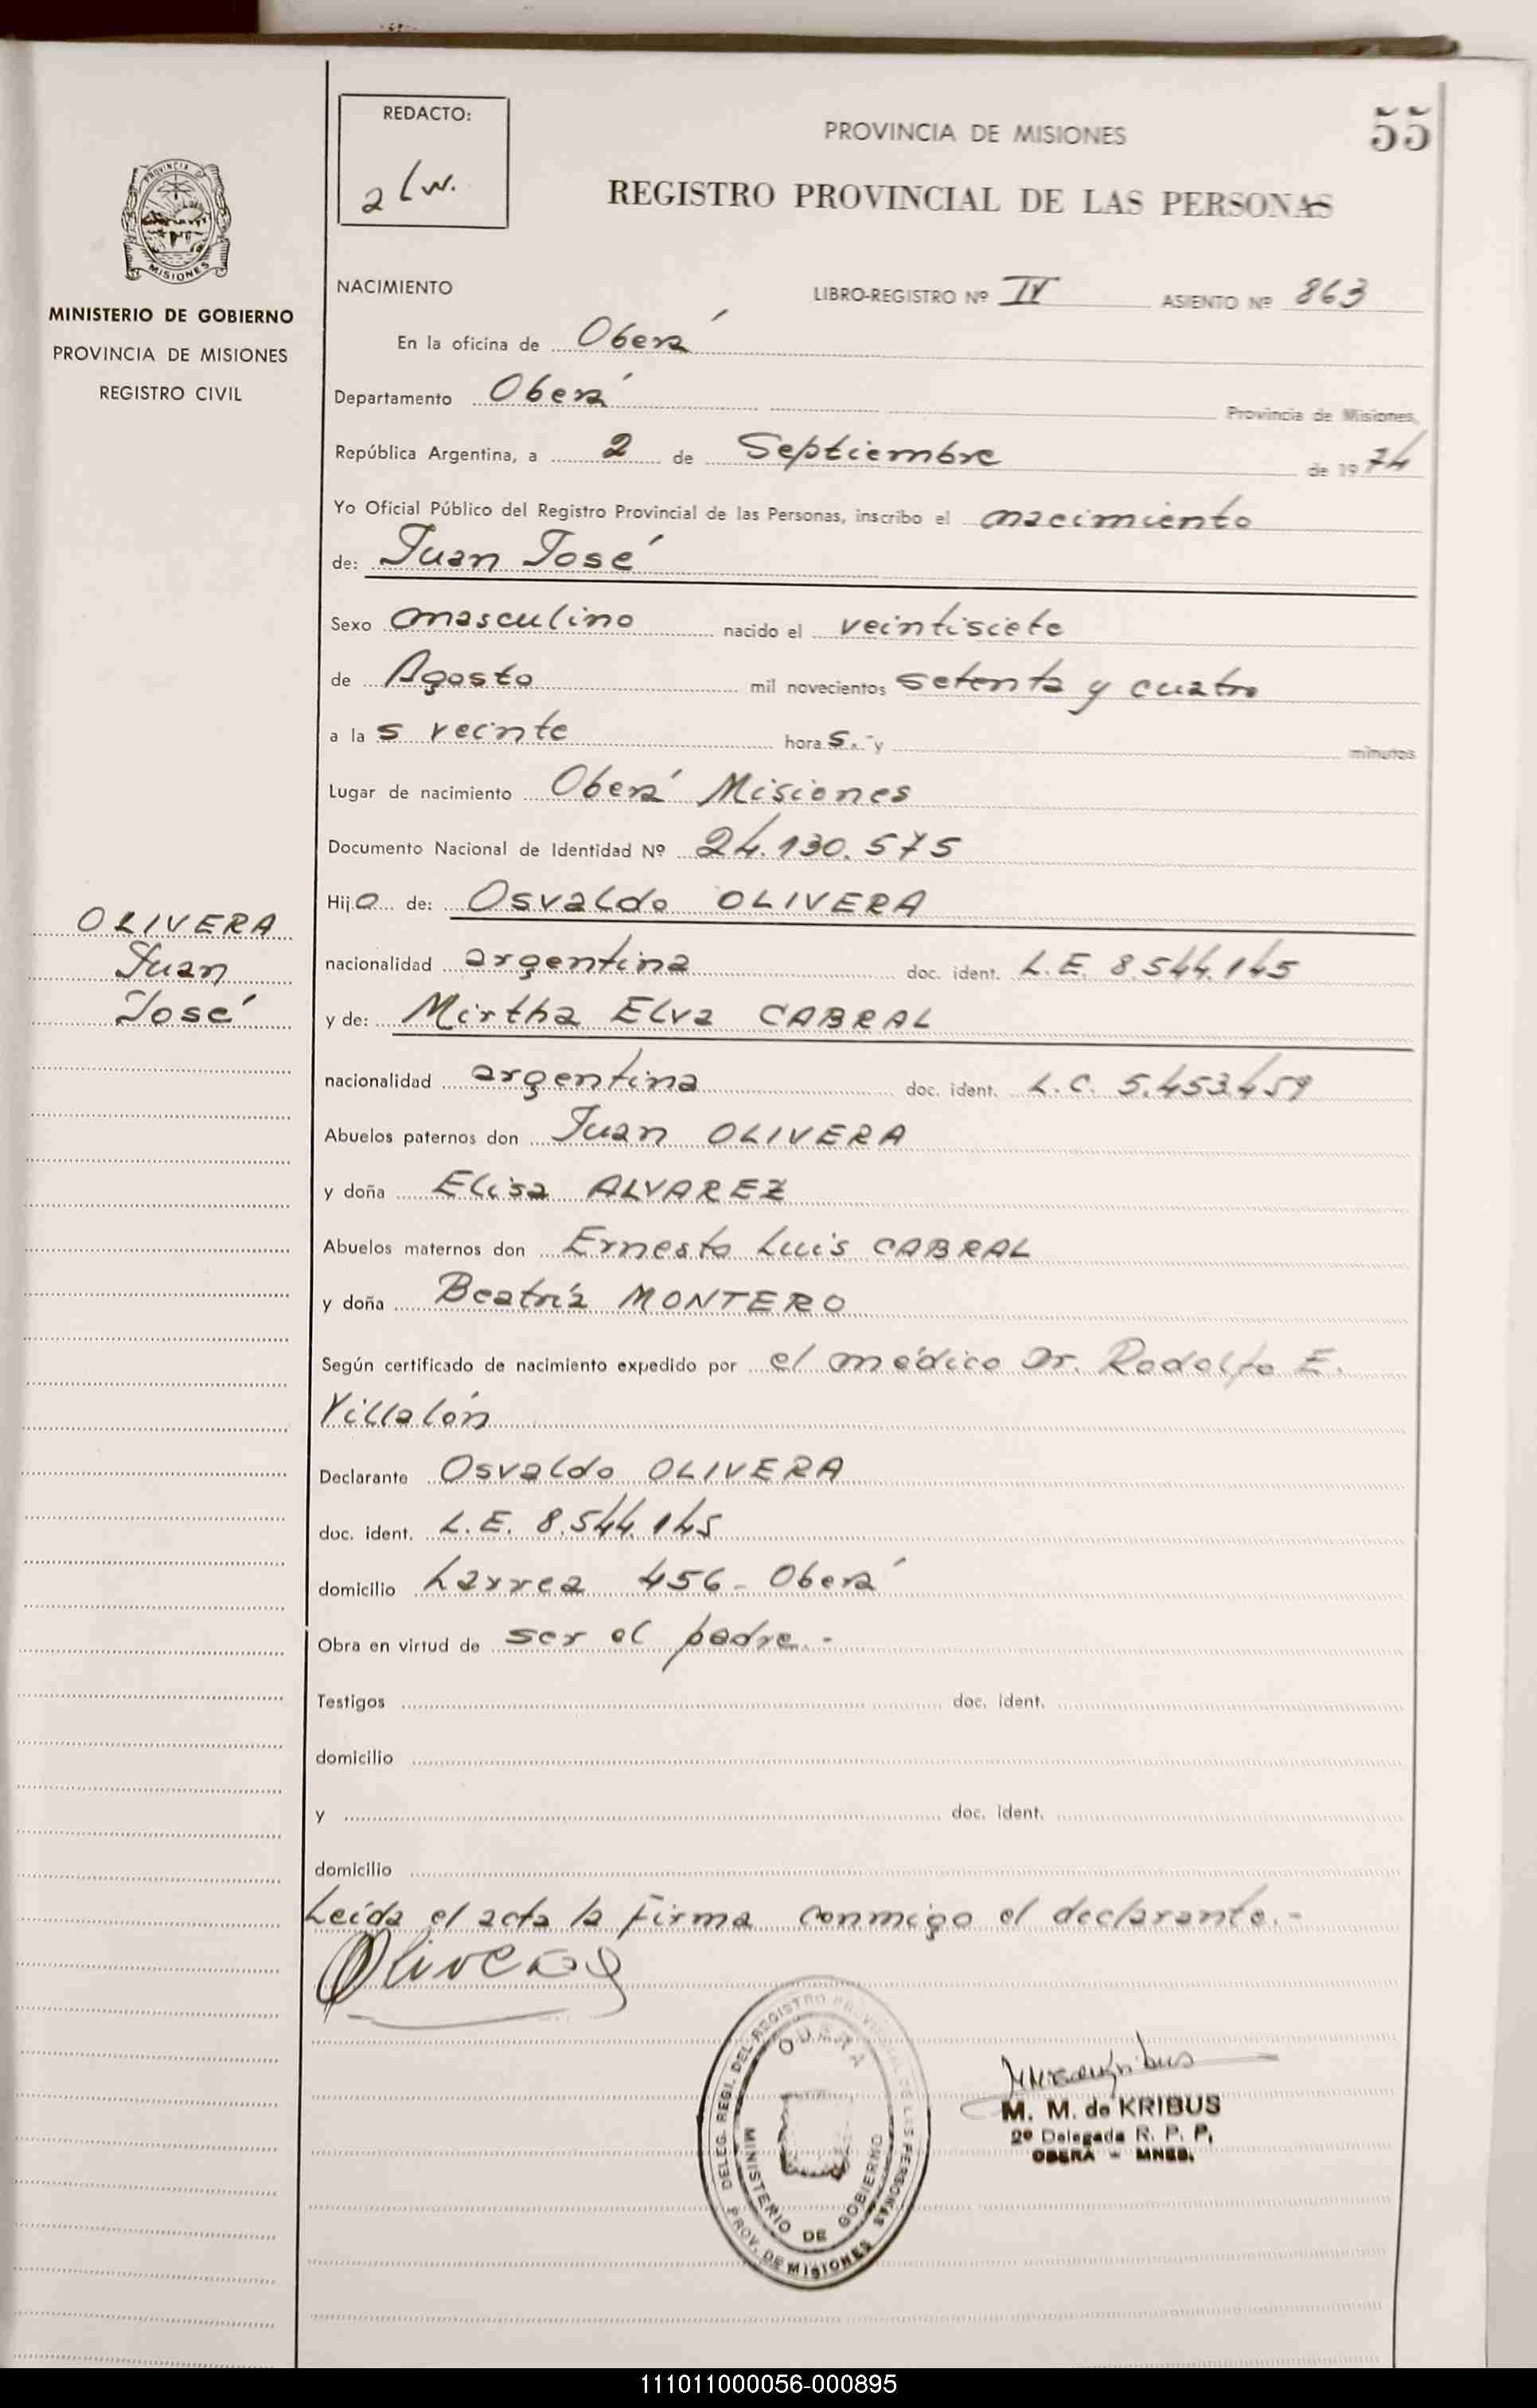 55
REDACTO:
PROVINCIA DE MISIONES
REGISTRO PROVINCIAL DE LAS PERSONAS
PROVINCIA DE
MISIONES
MINISTERIO DE GOBIERNO
PROVINCIA DE MISIONES
REGISTRO CIVIL
NACIMIENTO LIBRO-REGISTRO Nº IV ASIENTO Nº 863
En la oficina de Oberá
Departamento Oberá Provincia de Misiones,
República Argentina, a 2 de Septiembre de 1974
Yo Oficial Público del Registro Provincial de las Personas, inscribo el nacimiento
de: Juan José
Sexo masculino nacido el veintisiete
de Agosto mil novecientos setenta y cuatro
a las veinte horas.- y minutos
Lugar de nacimiento Oberá Misiones
Documento Nacional de Identidad Nº 24.130.575
Hijo de: Osvaldo OLIVERA
OLIVERA
Juan
José
nacionalidad argentina doc. ident. L.E. 8.544.145
y de: Mirtha Elva CABRAL
nacionalidad argentina doc. ident. L.C. 5.453.459
Abuelos paternos don Juan OLIVERA
y doña Elisa ALVAREZ
Abuelos maternos don Ernesto Luis CABRAL
y doña Beatríz MONTERO
Según certificado de nacimiento expedido por el médico Dr. Rodolfo E.
Villalón
Declarante Osvaldo OLIVERA
doc. ident. L.E. 8.544.145
domicilio Larrea 456- Oberá
Obra en virtud de ser el padre.-
Testigos doc. ident.
domicilio
y doc. ident.
domicilio
Leída el acta la firma conmigo el declarante.-
Olivera
DELEG. REGI. DEL REGISTRO PROVINCIAL DE LAS PERSONAS
OBERA
MINISTERIO DE GOBIERNO
PROV. DE MISIONES
M. M. de KRIBUS
2º Delegada R. P. P.
OBERA - MNES.
111011000056-000895